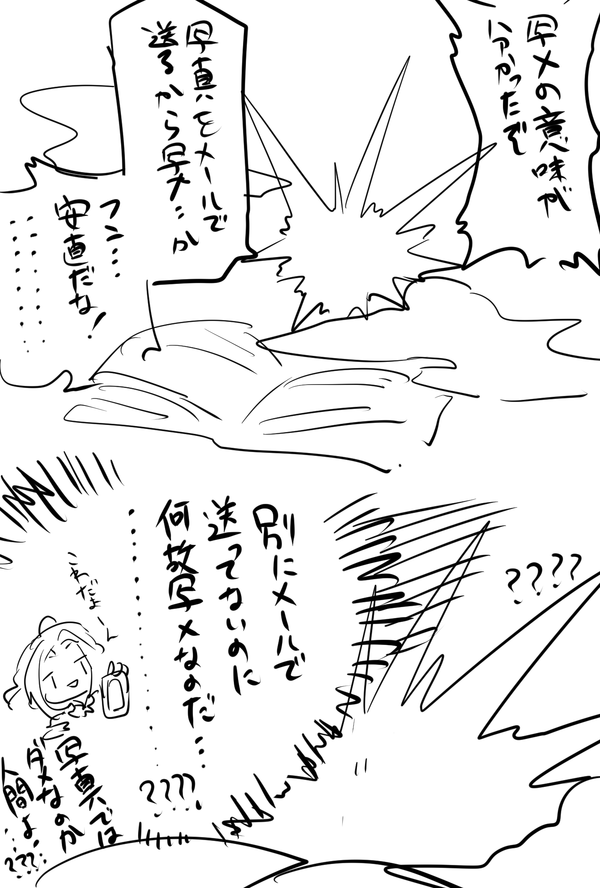 写メの意味が
ハァかったぞ
写真をメールで
送るから写メ…か
フン…
安直だな!
…………
別にメールで
送ってないのに
何故写メなのだ…
…………
????
????
これだよーん
写真では
ダメなのか
人間よ…
???